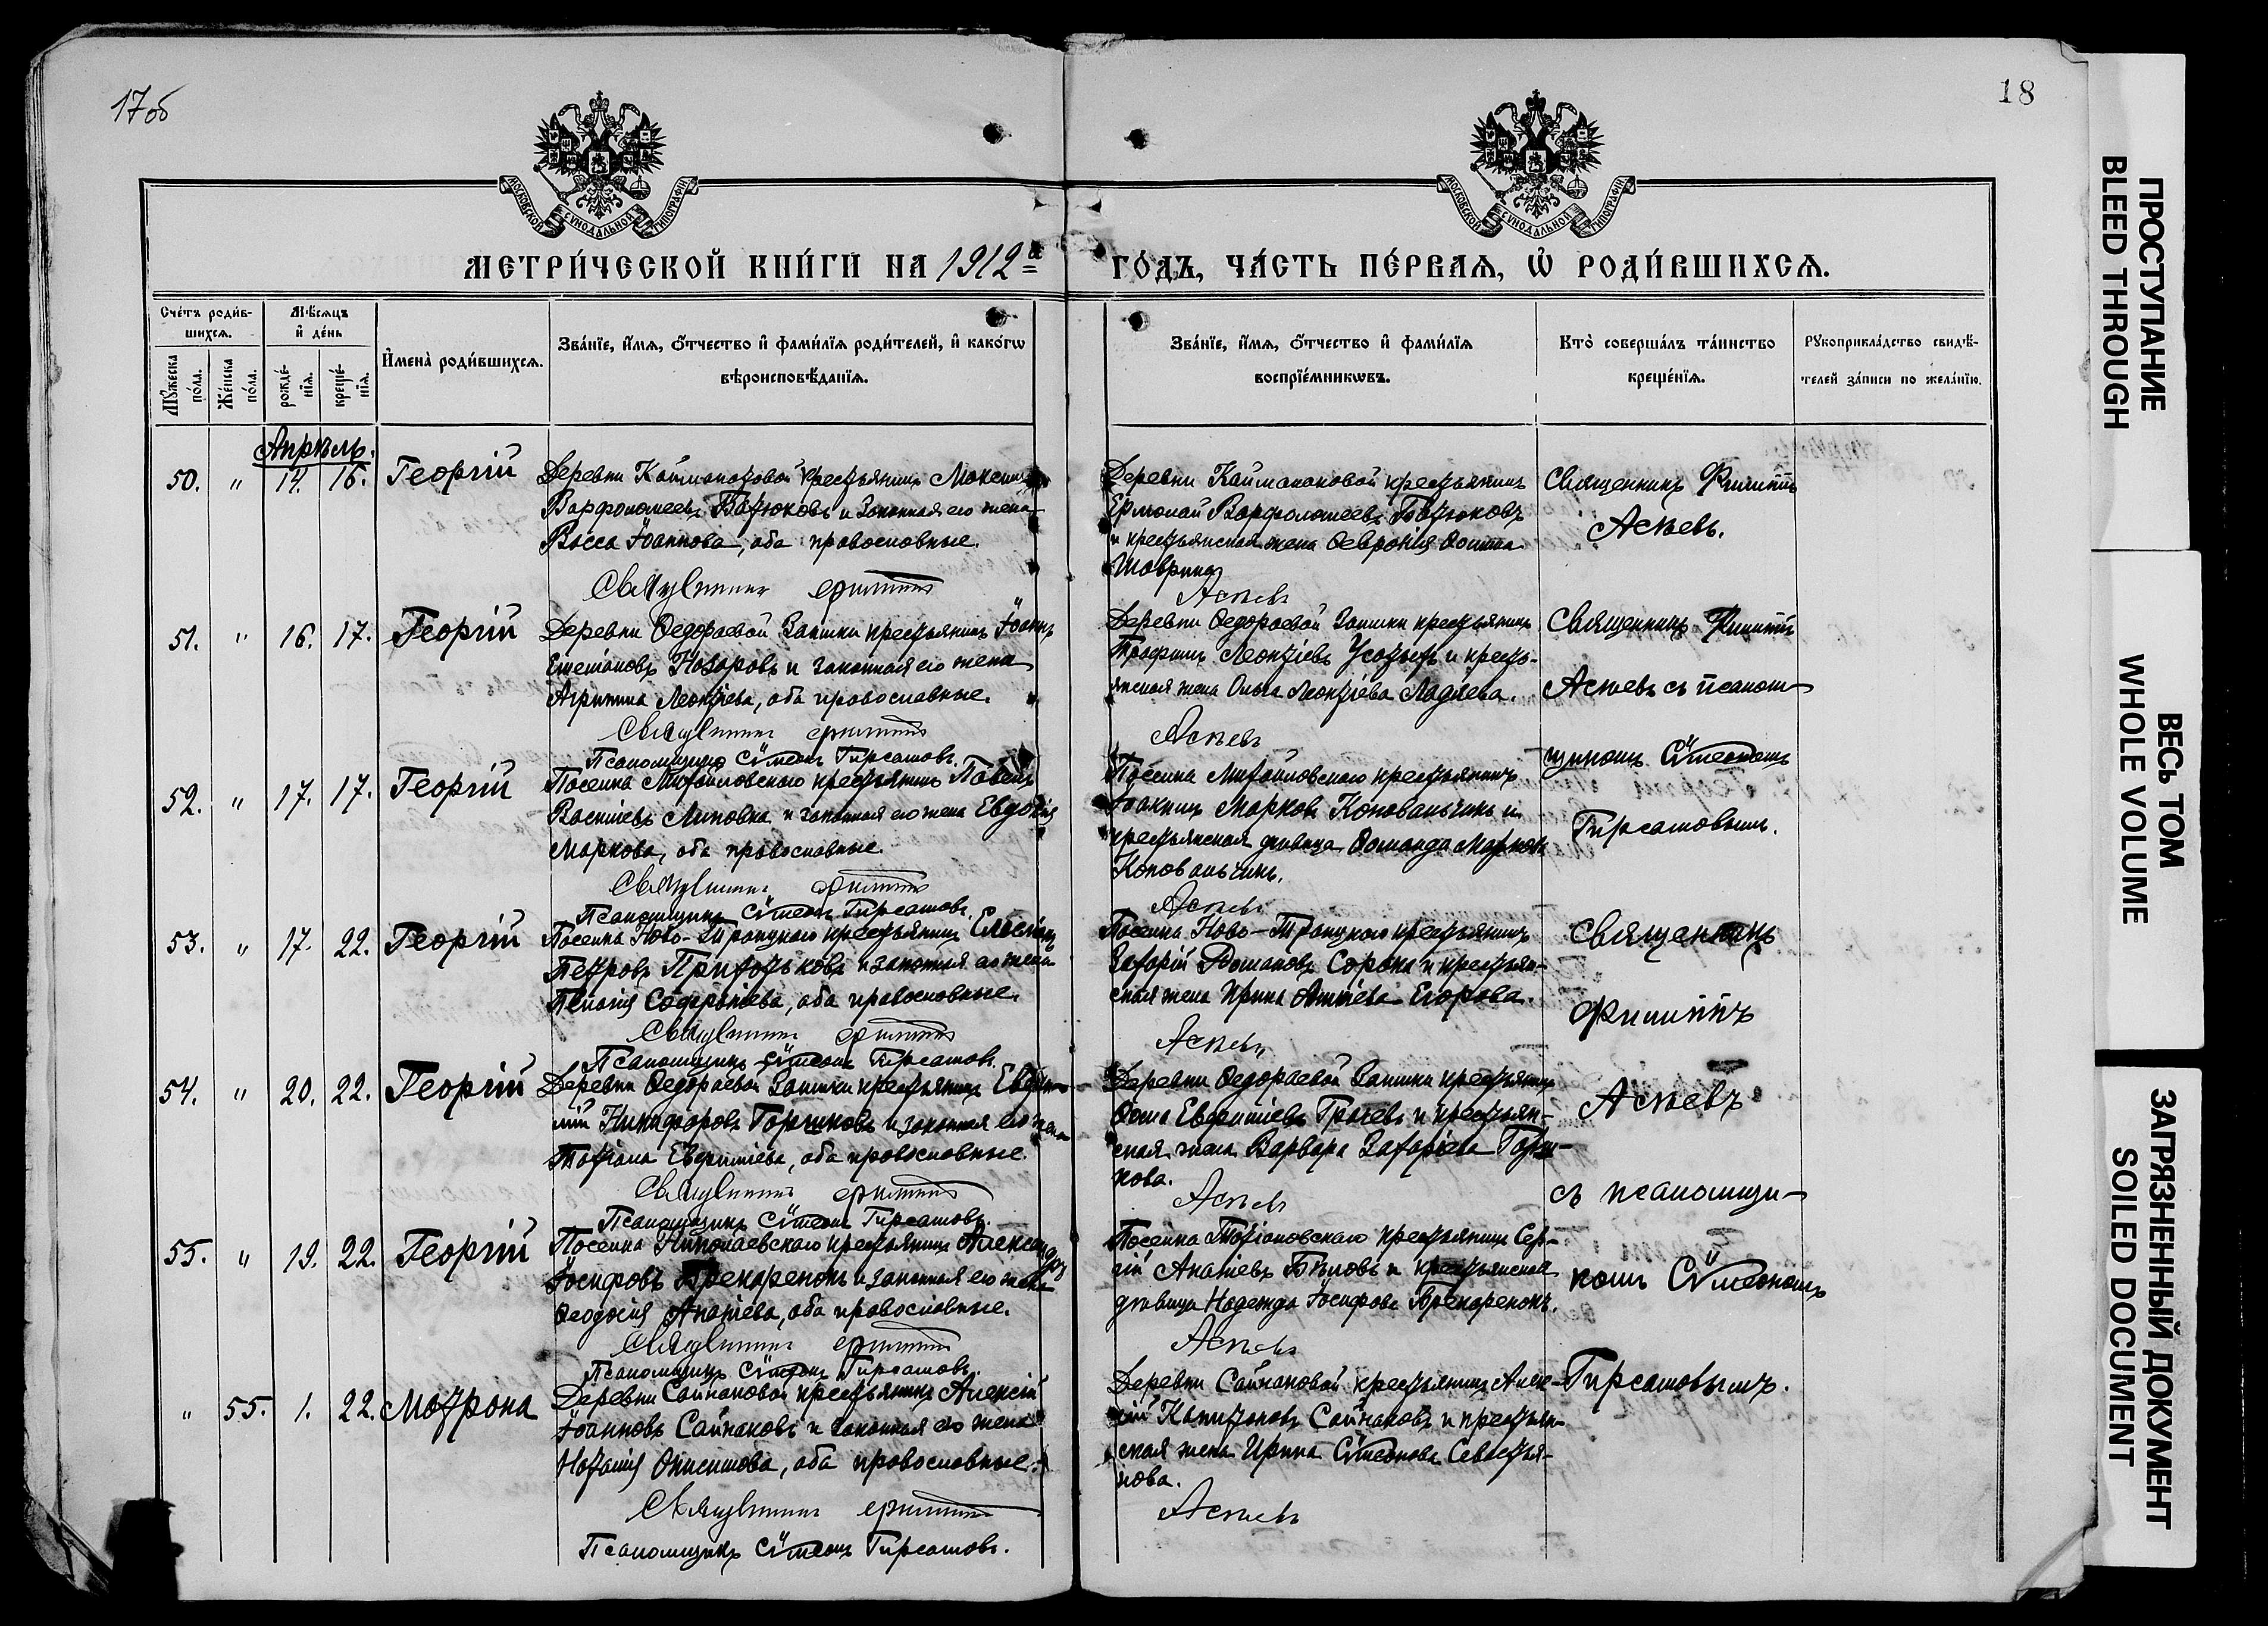 17об
18
МОСКОВСКОЙ СУНОДАЛЬНОЙ ТИПОГРАФІИ
МОСКОВСКОЙ СУНОДАЛЬНОЙ ТИПОГРАФІИ
МЕТРИ́ЧЕСКОЙ КНИ́ГИ НА 1912й
ГО́ДЪ, ЧА́СТЬ ПЕ́РВАѦ, Ѡ҆ РОДИ́ВШИХСѦ.
Сче́тъ роди́в-
шихсѧ.
Мѣ́сѧцъ
и҆ де́нь
Мꙋ́жеска по́ла.
Же́нска по́ла.
рожде́-нїѧ.
креще́-нїѧ.
И҆мена̀ роди́вшихсѧ.
Зва́нїе, и҆́мѧ, ѻ҆́тчество и҆ фами́лїѧ роди́телей, и҆ како́гѡ
вѣроисповѣ́данїѧ.
Зва́нїе, и҆́мѧ, ѻ҆́тчество и҆ фами́лїѧ
воспрїе́мникѡвъ.
Кто̀ соверша́лъ та́инство
креще́нїѧ.
Рꙋкоприкла́дство свидѣ́-
телей за́писи по жела́нїю.
Апрѣль.
50. " 14. 15. Георгій
Деревни Каймонаковой крестьянинъ Максимъ
Варфоломеевъ Батюковъ и законная его жена
Васса Іоаннова, оба православные.
Священникъ Филиппъ
Деревни Каймонаковой крестьянинъ
Ермолай Варфоломеевъ Батюковъ
и крестьянская жена Февронія Фомина
Шаврина
Асѣевъ
Священникъ Филиппъ
Асѣевъ.
51. " 16. 17. Георгій
Деревни Ѳедораевой Заимки крестьянинъ Іоаннъ
Емеліановъ Назаровъ и законная его жена
Агрипина Леонтіева, оба православные.
Священникъ Филиппъ
Псаломщикъ Сѵмеонъ Тирсатовъ.
Деревни Ѳедораевой Заимки крестьянинъ
Трофимъ Леонтіевъ и кресть-
янская жена Ольга Леонтіева Ладяева.
Асѣевъ
Священникъ Филиппъ
Асѣевъ съ псалом-
щикомъ Сѵмеономъ
Тирсатовымъ.
52. " 17. 17. Георгій
Поселка Михайловскаго крестьянинъ Павелъ
Васильевъ Липовка и законная его жена Евдокія
Маркова, оба православные.
Священникъ Филиппъ
Псаломщикъ Сѵмеонъ Тирсатовъ.
Поселка Михайловскаго крестьянинъ
Іоакимъ Марковъ Коновальчикъ и
крестьянская дѣвица Маркова
Коновальчикъ.
Асѣевъ
53. " 17. 22. Георгій
Поселка Ново-Троицкаго крестьянинъ
Петровъ Притотьковъ и законная его жена
Пелагія оба православные.
Священникъ Филиппъ
Псаломщикъ Сѵмеонъ Тирсатовъ.
Поселка Ново-Троицкаго крестьянинъ
Захарій Романовъ Сорока и крестьян-
ская жена Ирина Егорова.
Асѣевъ
Священникъ
Филиппъ
54. " 20. 22. Георгій
Деревни Ѳедораевой Заимки крестьянинъ Евфи-
мій Никифоровъ Горшковъ и законная его жена
Татіана Евфиміева, оба православные.
Священникъ Филиппъ
Псаломщикъ Сѵмеонъ Тирсатовъ.
Деревни Ѳедораевой Заимки крестьянинъ
Ѳома Евфиміевъ и крестьян-
ская жена Варвара Захаріева Горш-
кова.
Асѣевъ
Асѣевъ
съ псаломщи-
55. " 19. 22. Георгій
Поселка Николаевскаго крестьянинъ Александръ
Іосифовъ и законная его жена
Ѳеодосія Ананіева, оба православные.
Священникъ Филиппъ
Псаломщикъ Сѵмеонъ Тирсатовъ.
Поселка Татіановскаго крестьянинъ Сер-
гій Ананіевъ Бѣловъ и крестьянская
дѣвица Надежда Іосифова
Асѣевъ
комъ Сѵмеономъ
" 55. 1. 22. Матрона
Деревни Сайнаковой крестьянинъ Алексій
Іоанновъ Сайнаковъ и законная его жена
Наталія Онисимова, оба православные.
Священникъ Филиппъ
Псаломщикъ Сѵмеонъ Тирсатовъ.
Деревни Сайнаковой крестьянинъ Алек-
сій Капитоновъ Сайнаковъ и крестьян-
ская жена Ирина Сѵмеонова Севастья-
нова.
Асѣевъ
Тирсатовымъ.
ПРОСТУПАНИЕ
BLEED THROUGH
ВЕСЬ ТОМ
WHOLE VOLUME
ЗАГРЯЗНЕННЫЙ ДОКУМЕНТ
SOILED DOCUMENT